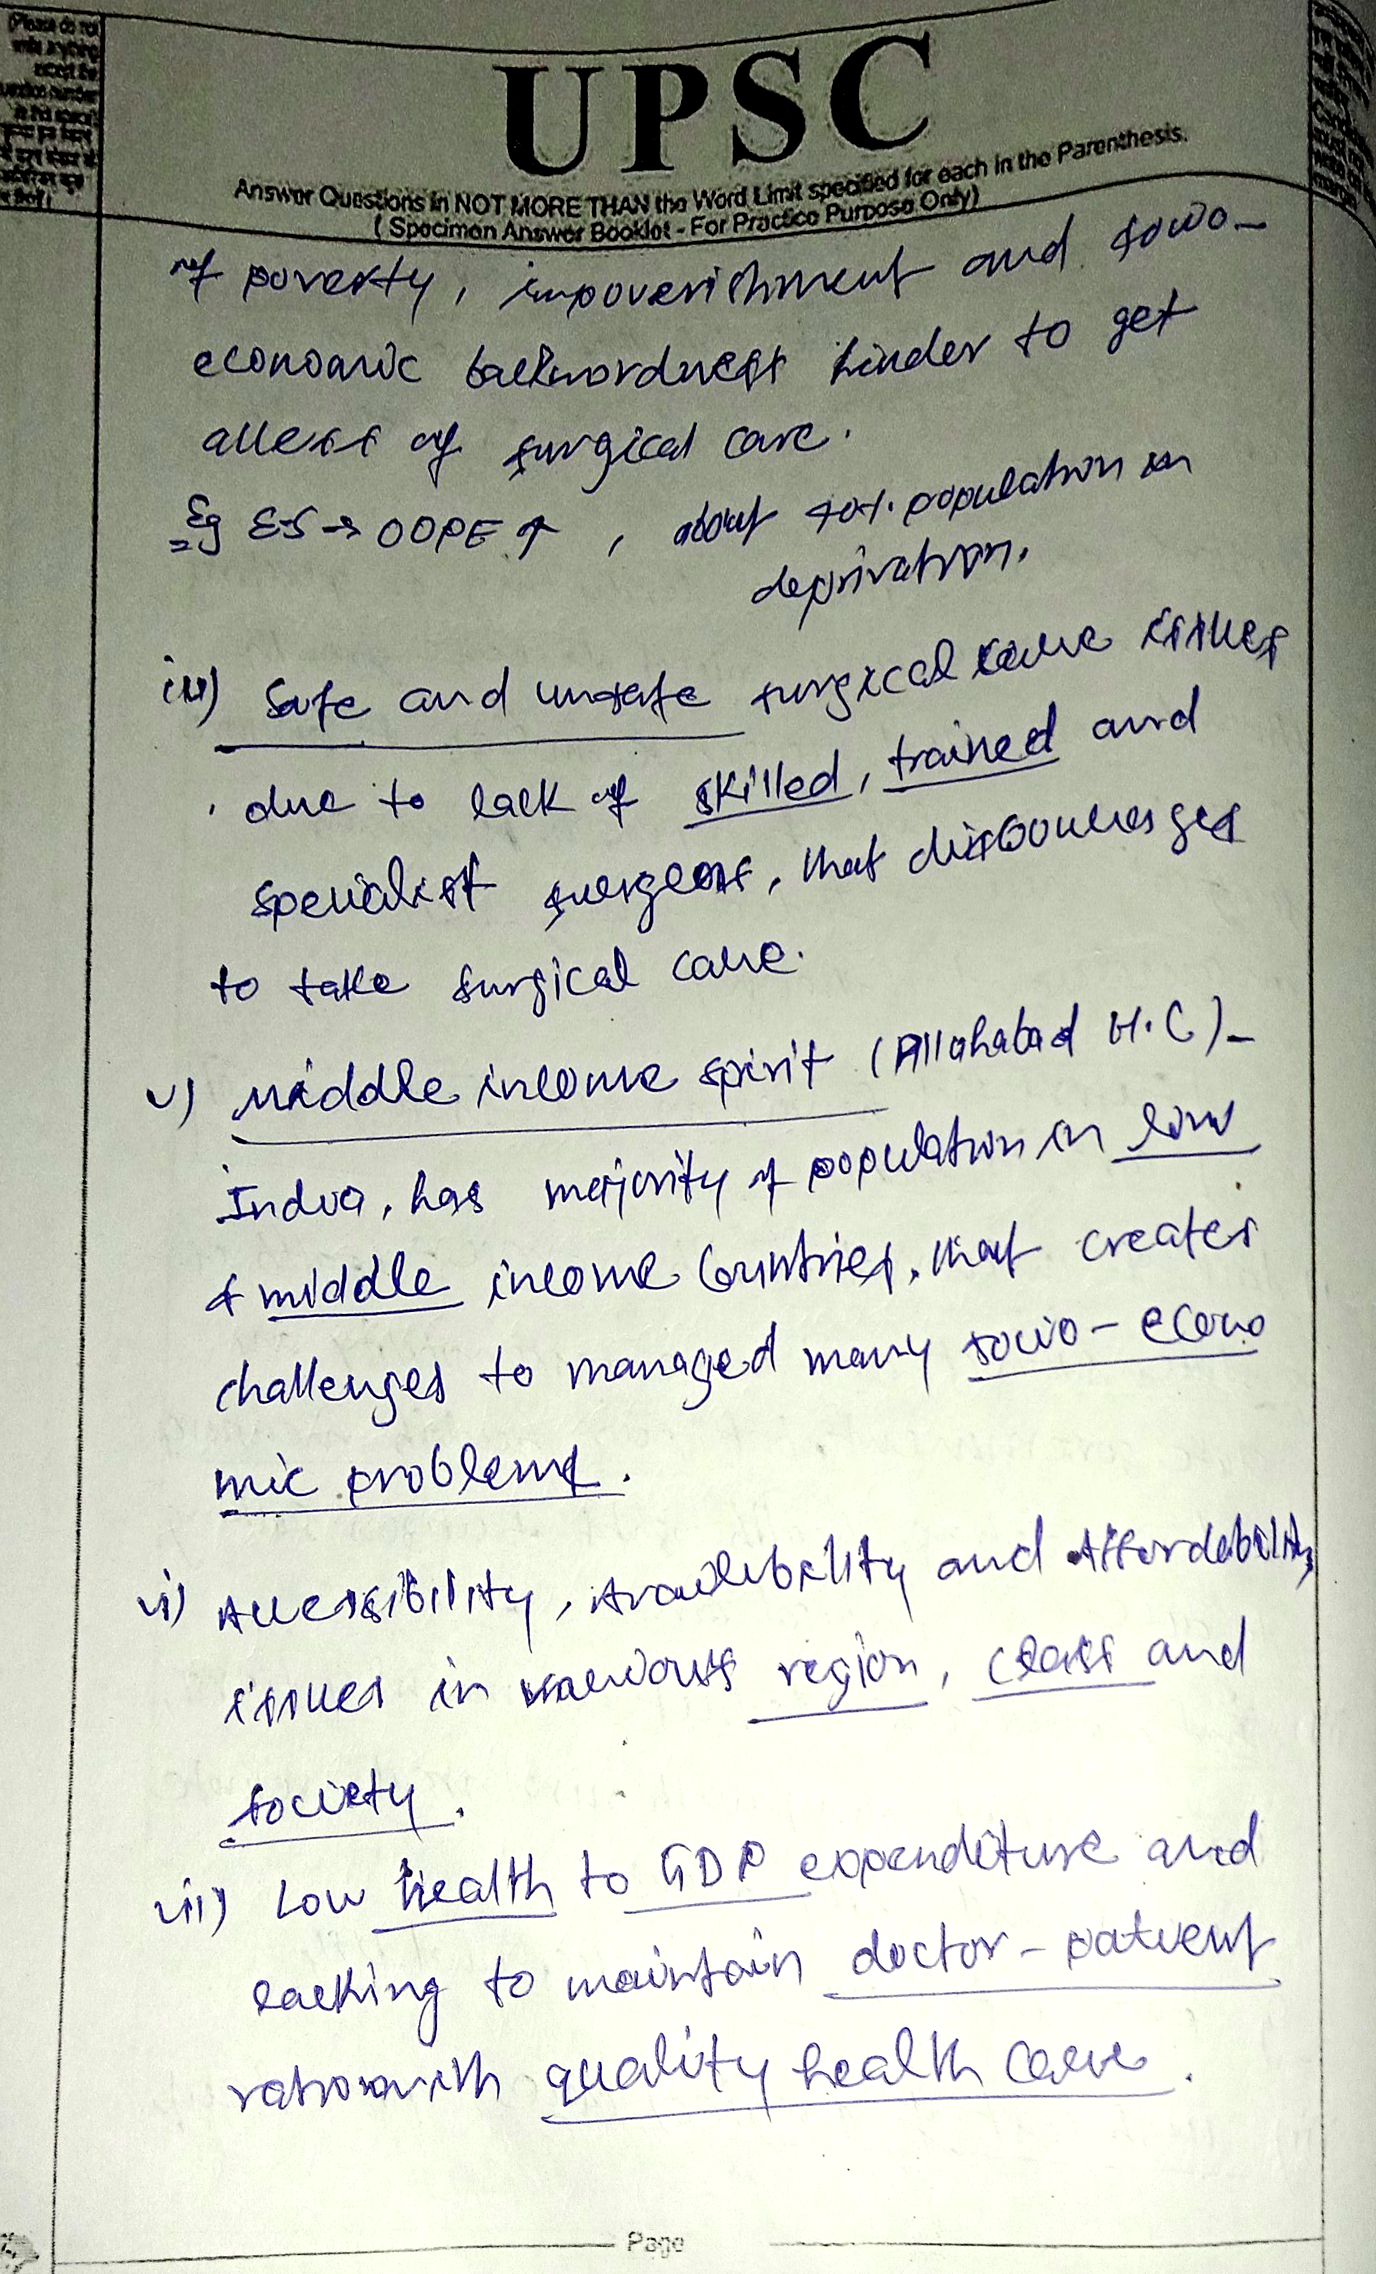 (Please do not
write anything
except the
question number
in this space)
UPSC
Answer Questions in NOT MORE THAN the Word Limit specified for each in the Parenthesis.
( Specimen Answer Booklet - For Practice Purpose Only)
of poverty, impoverishment and socio-
economic backwardness hinder to get
access of surgical care.
Eg ES → OOPE ↑, about population in
deprivation.
Safe and unsafe surgical care issues
due to lack of skilled, trained and
specialist surgeons, that discourages
to take surgical care.
v) Middle income spirit (Allahabad H.C) -
India, has majority of population in low
& middle income Countries, that creates
challenges to managed many socio-econo
mic problems.
vi) Accessibility, Availability and Affordability
issues in various region, class and
society.
vii) Low health to GDP expenditure and
lacking to maintain doctor-patient
ratio with quality health care.
Page